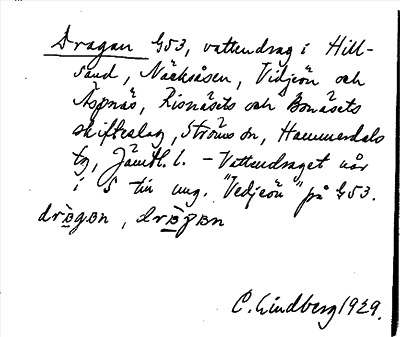 Dragan G53, vattendrag i Hill-
sand, Näcksåsen, Vidjeön och
Äspnäs, Risnäsets och Bonäsets
skifteslag, Ströms sn, Hammerdals
tg, Jämtl. l. - Vattendraget når
i S till ung. "Vedjeön" på G53.
drɛ̀gɵn, drɛ̀gɵn
C. Lindberg 1929.